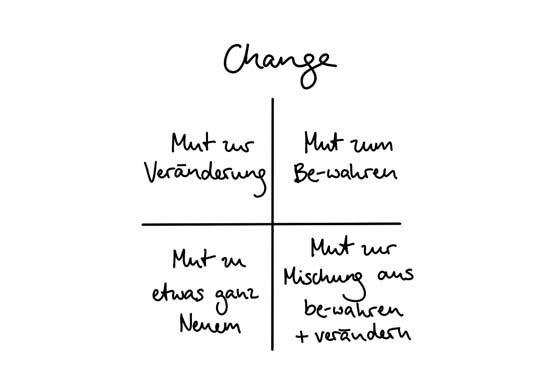 Change
Mut zur
Veränderung
Mut zum
Be-wahren
Mut zu
etwas ganz
Neuem
Mut zur
Mischung aus
be-wahren
+ verändern